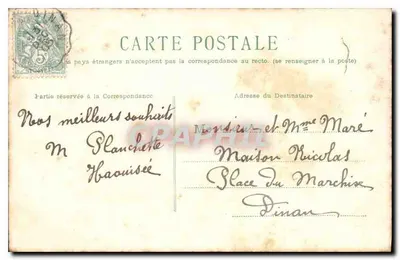 CARTE POSTALE
pays étrangers n'acceptent pas la correspondance au recto. (se renseigner à la poste)
Partie réservée à la Correspondance
Adresse du Destinataire
Nos meilleurs souhaits
M Plancheste
Haouisée
Monsieur et Mme Maré
Maison Nicolas
Place du Marchix
Dinan